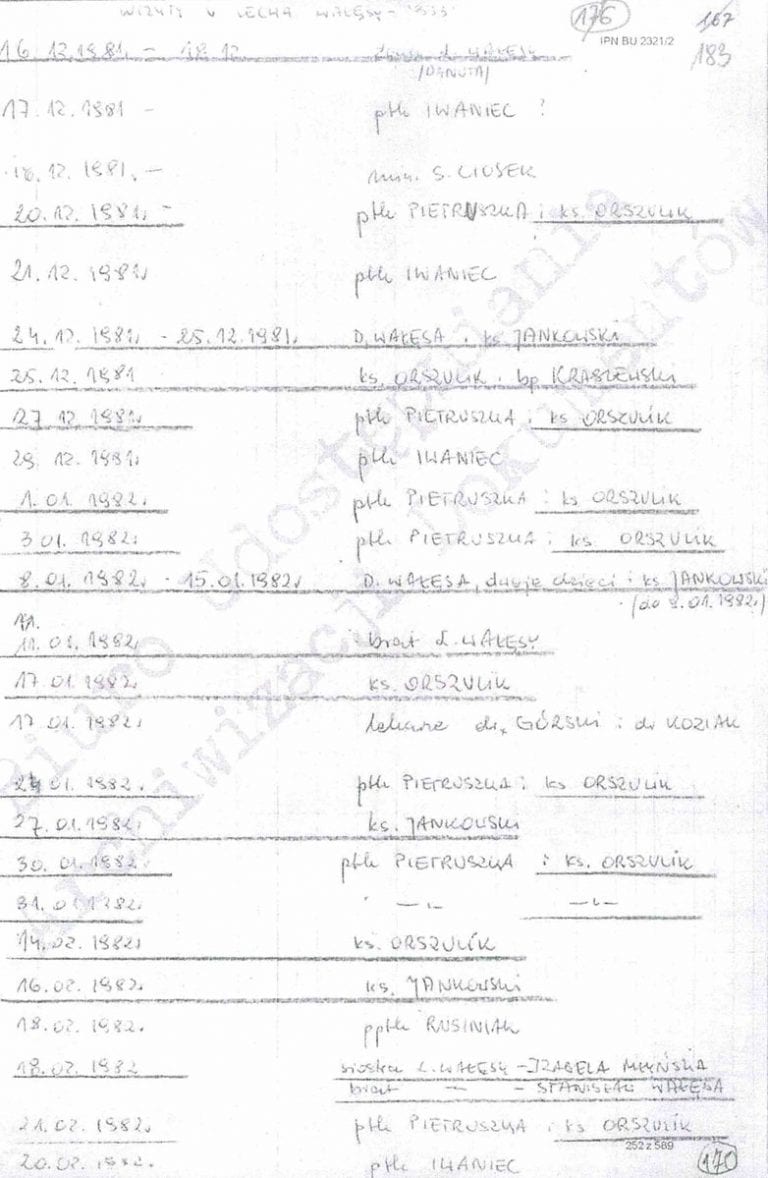 WIZYTY U LECHA WAŁĘSY -
176
167
IPN BU 2321/2
183
16.12.1981. - 18.12
żona L. WAŁĘSY
/DANUTA/
17.12.1981 - płk IWANIEC ?
12.1981. - min. S. CIOSEK
20.12.1981. - płk PIETRUSZKA i ks. ORSZULIK
21.12.1981. płk IWANIEC
24.12.1981. - 25.12.1981. D. WAŁĘSA i ks. JANKOWSKI
25.12.1981 ks. ORSZULIK i bp KRASZEWSKI
27.12.1981. płk PIETRUSZKA i ks ORSZULIK
29.12.1981. płk IWANIEC
1.01.1982. płk PIETRUSZKA i ks ORSZULIK
3.01.1982. płk PIETRUSZKA i ks. ORSZULIK
8.01.1982. - 15.01.1982. D. WAŁĘSA, dwoje dzieci i ks JANKOWSKI
(do 9.01.1982.)
11.
11.01.1982. brat L. WAŁĘSY
17.01.1982. ks. ORSZULIK
17.01.1982. lekarze dr. GÓRSKI i dr KOZIAK
24.01.1982. płk PIETRUSZKA i ks. ORSZULIK
27.01.1982. ks. JANKOWSKI
30.01.1982. płk PIETRUSZKA i ks. ORSZULIK
31.01.1982. — " — — " —
14.02.1982. ks. ORSZULIK
16.02.1982. ks. JANKOWSKI
18.02.1982. ppłk RUSINIAK
18.02.1982 siostra L. WAŁĘSY - IZABELA MŁYŃSKA
brat — " — - STANISŁAW WAŁĘSA
21.02.1982. płk PIETRUSZKA i ks ORSZULIK
252 z 589
20.02.1982. płk IWANIEC
170
Biuro Udostępniania
i Archiwizacji Dokumentów